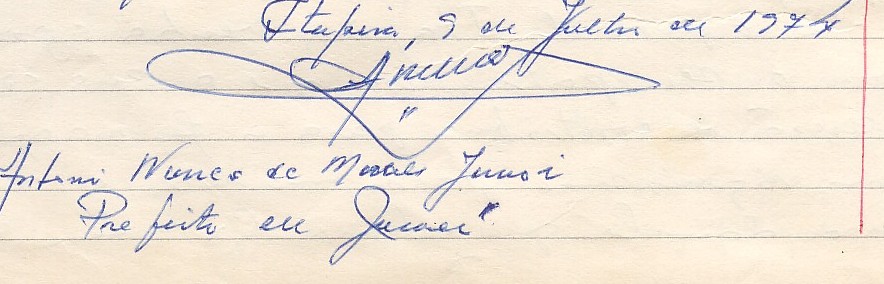 Itapira, 9 de Julho de 1974
Antonio Nunes de Moraes Junior
Prefeito de